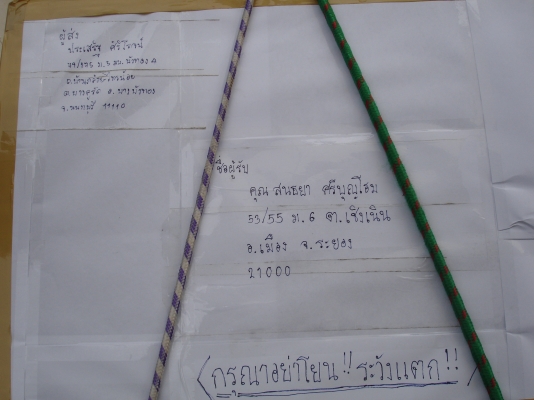 ผู้ส่ง
ประเสริฐ
จ.นนทบุรี 11110
ชื่อผู้รับ
คุณ สนธยา ศรีบุญโฮม
53/55 ม.6 ต.เชิงเนิน
อ.เมือง จ.ระยอง
21000
กรุณาอย่าโยน!! ระวังแตก!!